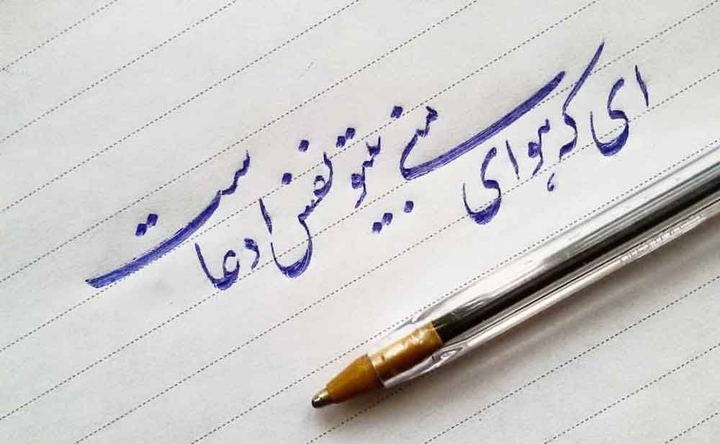 ای که هوای منی بیتو نفس ادعاست